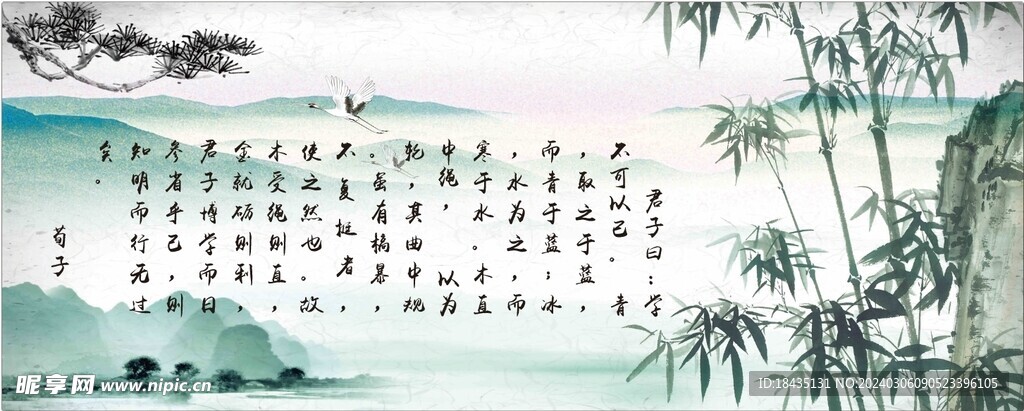 君子曰：学
不可以已。 青
，取之于蓝，
而青于蓝；冰
，水为之，而
寒于水。木直
中绳， 以为
轮，其曲中规
。虽有槁暴，
不 复挺者，
使之然也。故
木受绳则直，
金就砺则利，
君子博学而日
参省乎己，则
知明而行无过
矣。
荀子
昵享网 www.nipic.cn
ID:18435131 NO:20240306090523396105